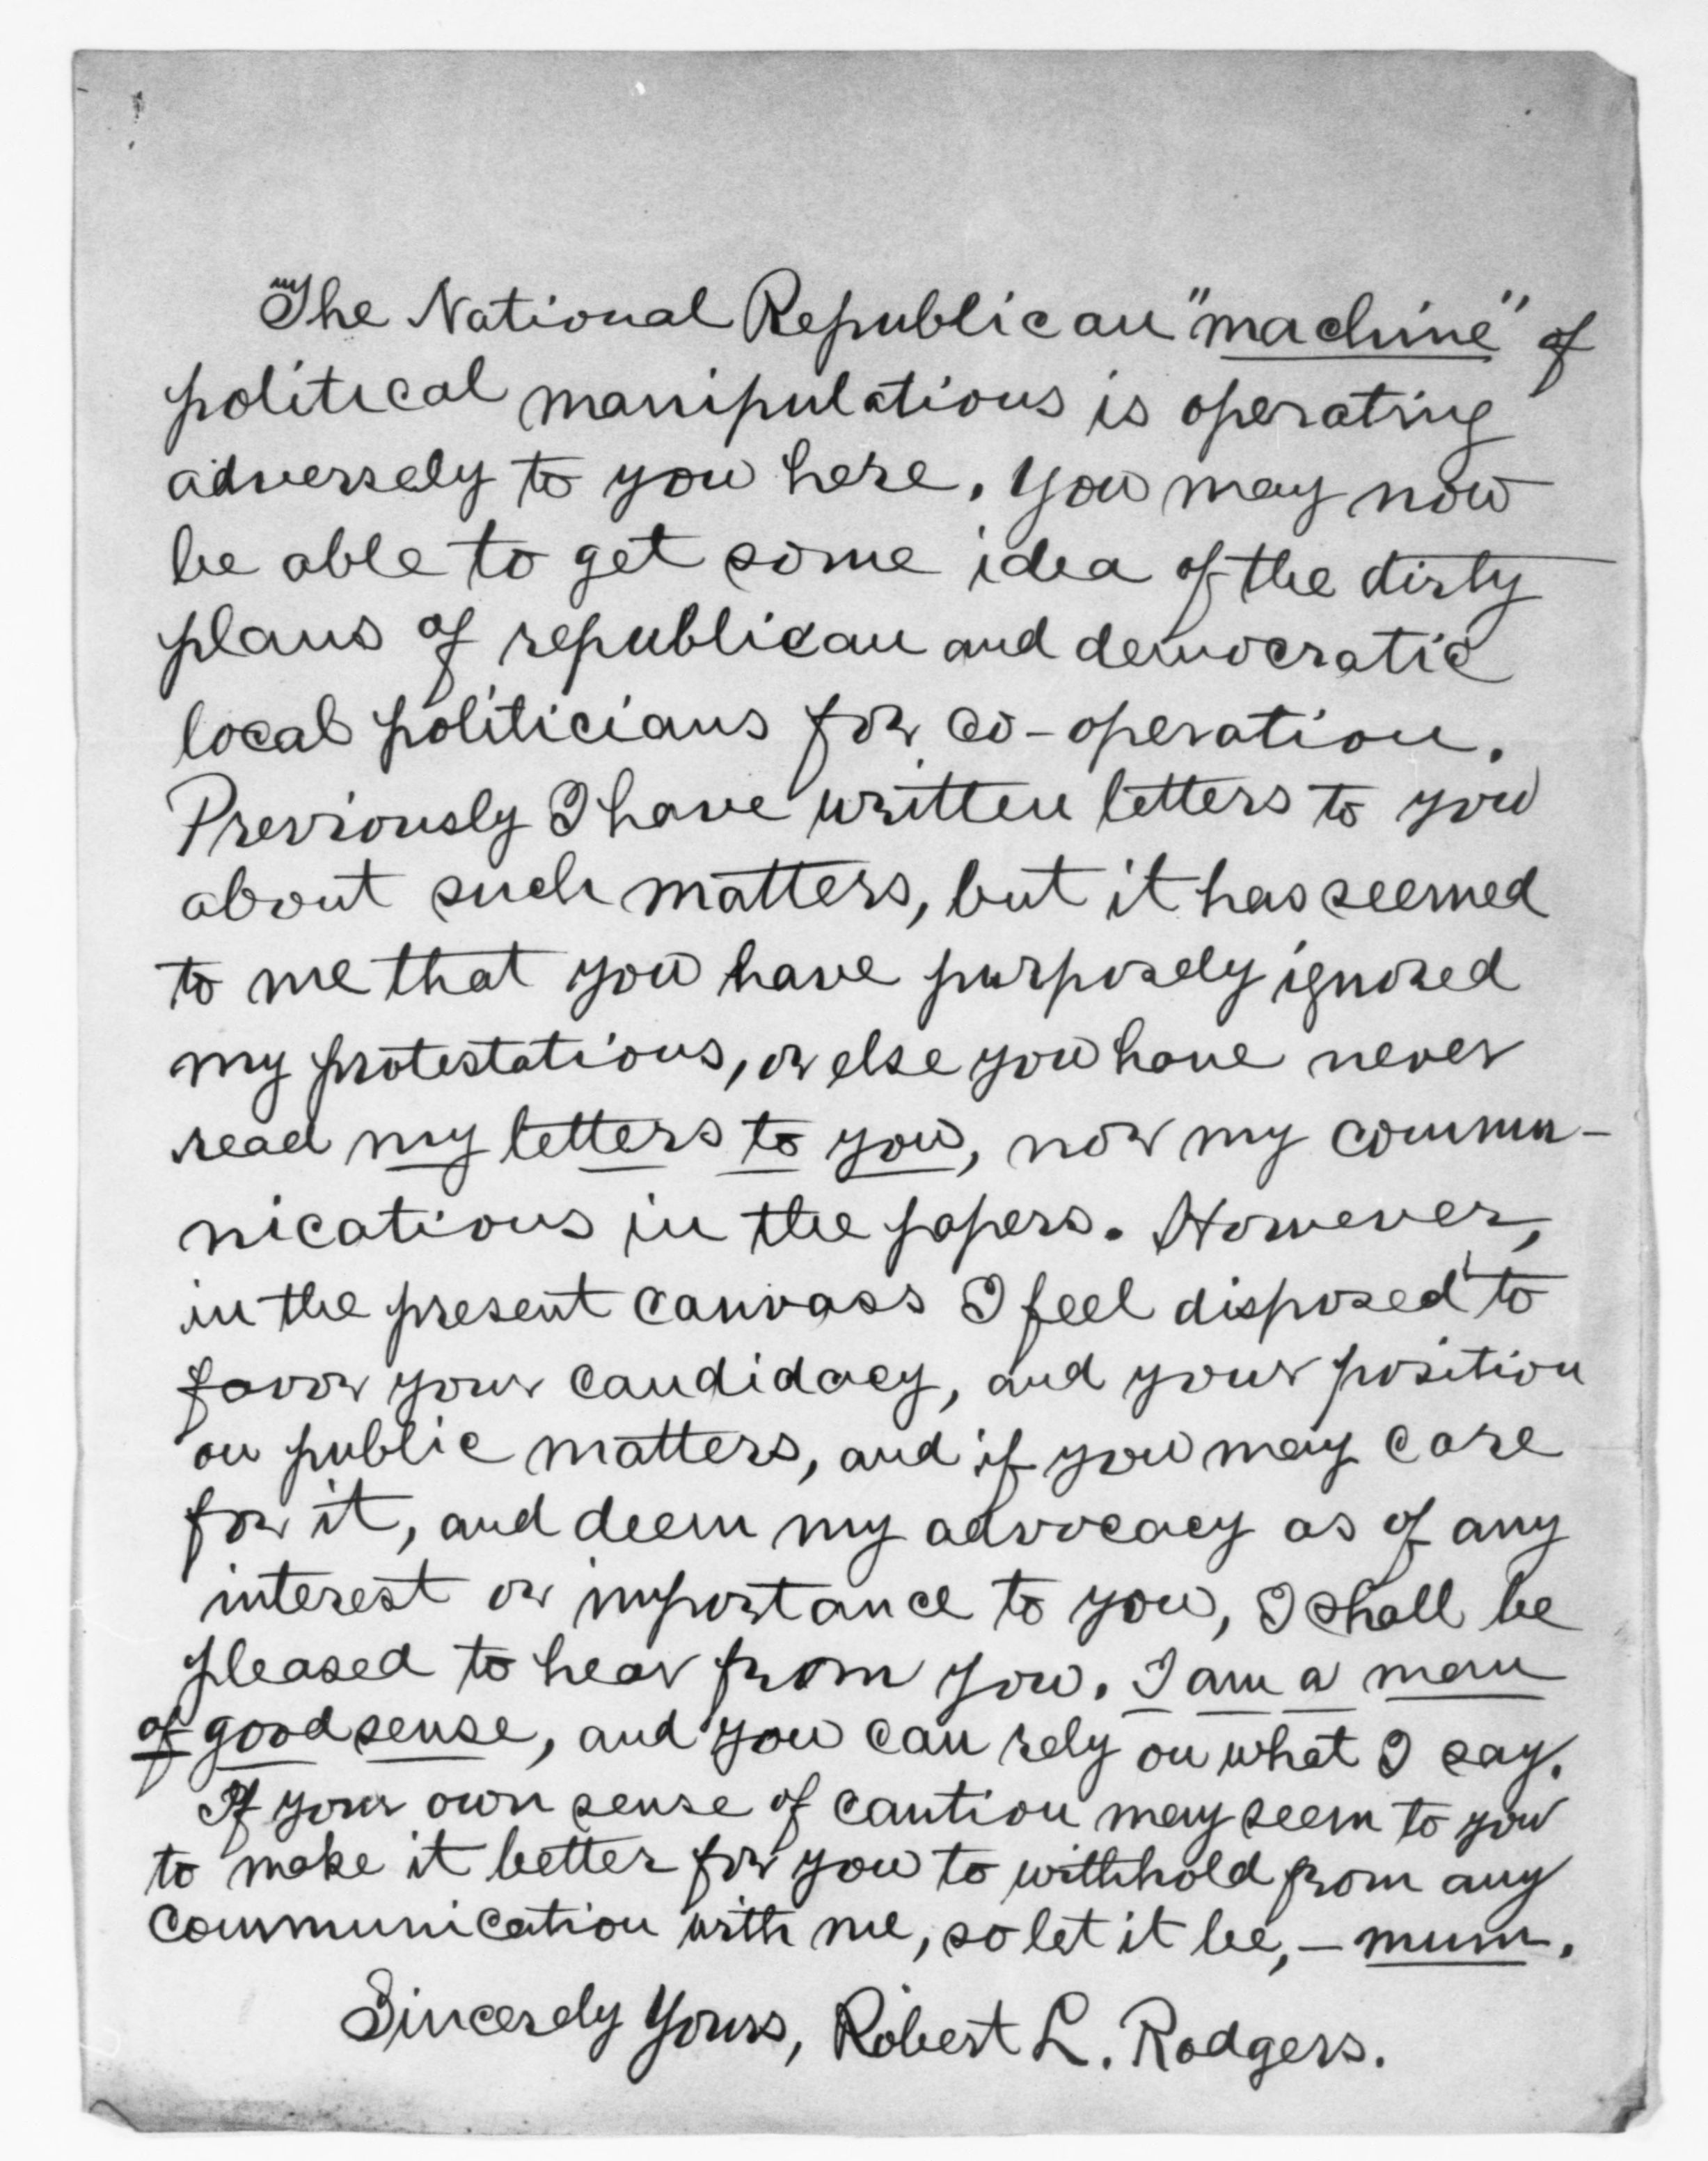 The National Republican "machine" of
political manipulations is operating
adversely to you here. You may now
be able to get some idea of the dirty
plans of republican and democratic
local politicians for co-operation.
Previously I have written letters to you
about such matters, but it has seemed
to me that you have purposely ignored
my protestations, or else you have never
read my letters to you, nor my commu-
nications in the papers. However,
in the present canvass I feel disposed to
favor your candidacy, and your position
on public matters, and if you may care
for it, and deem my advocacy as of any
interest or importance to you, I shall be
pleased to hear from you. I am a man
of good sense, and you can rely on what I say.
If your own sense of caution may seem to you
to make it better for you to withhold from any
communication with me, so let it be, - mum.
Sincerely Yours, Robert L. Rodgers.